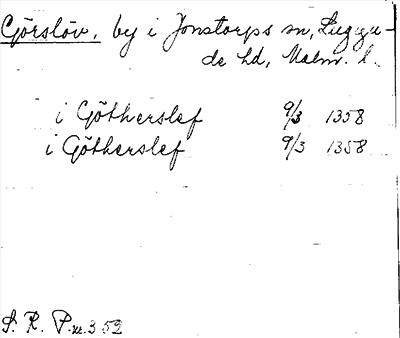 Görslöv, by i Jonstorps sn, Luggu-
de hd, Malm. l.
i Götherslef 9/3 1358
i Götherslef 9/3 1358
S. R. P. nr. 352